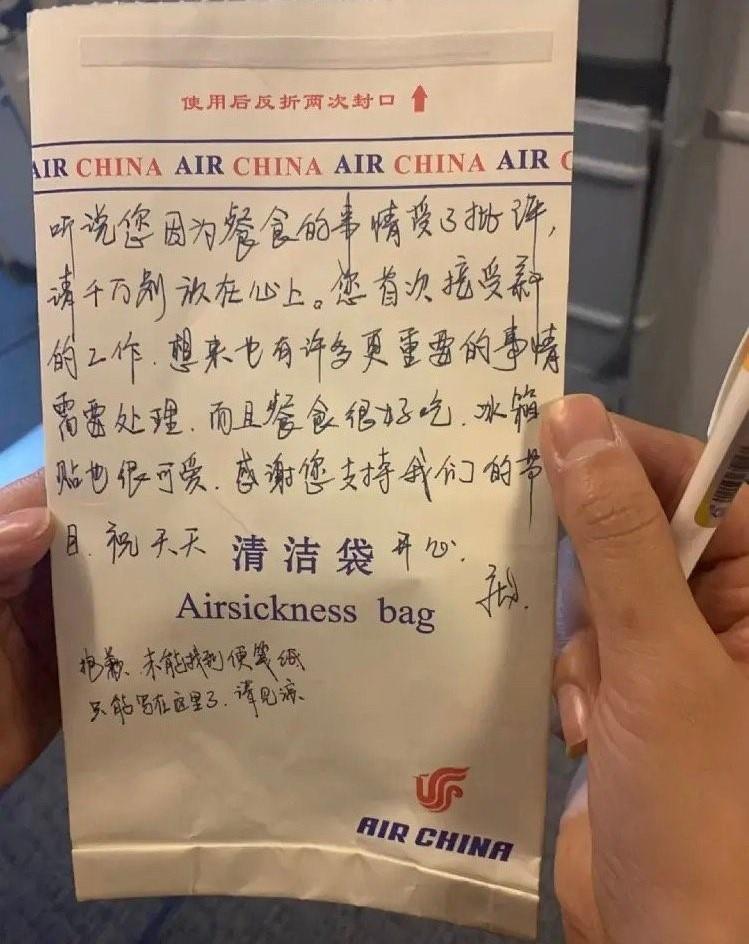 使用后反折两次封口
AIR CHINA AIR CHINA AIR CHINA AIR C
听说您因为餐食的事情受了批评,
请千万别放在心上。您首次接受新
的工作.想来也有许多更重要的事情
需要处理.而且餐食很好吃.冰箱
贴也很可爱.感谢您支持我们的节
目.祝天天 开心.
清洁袋
Airsickness bag
抱歉.未能找到便笺纸
只能写在这里了.请见谅.
AIR CHINA